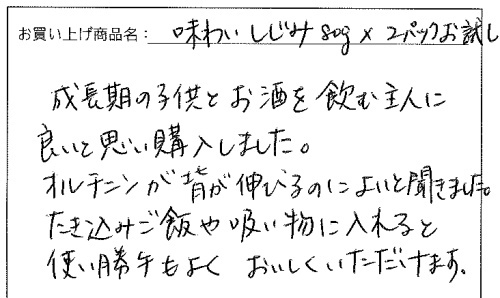 お買い上げ商品名： 味わいしじみ80g×2パックお試し
成長期の子供とお酒を飲む主人に
良いと思い購入しました。
オルチニンが背が伸びるのによいと聞きました。
たき込みご飯や吸い物に入れると
使い勝手もよく おいしくいただけます。